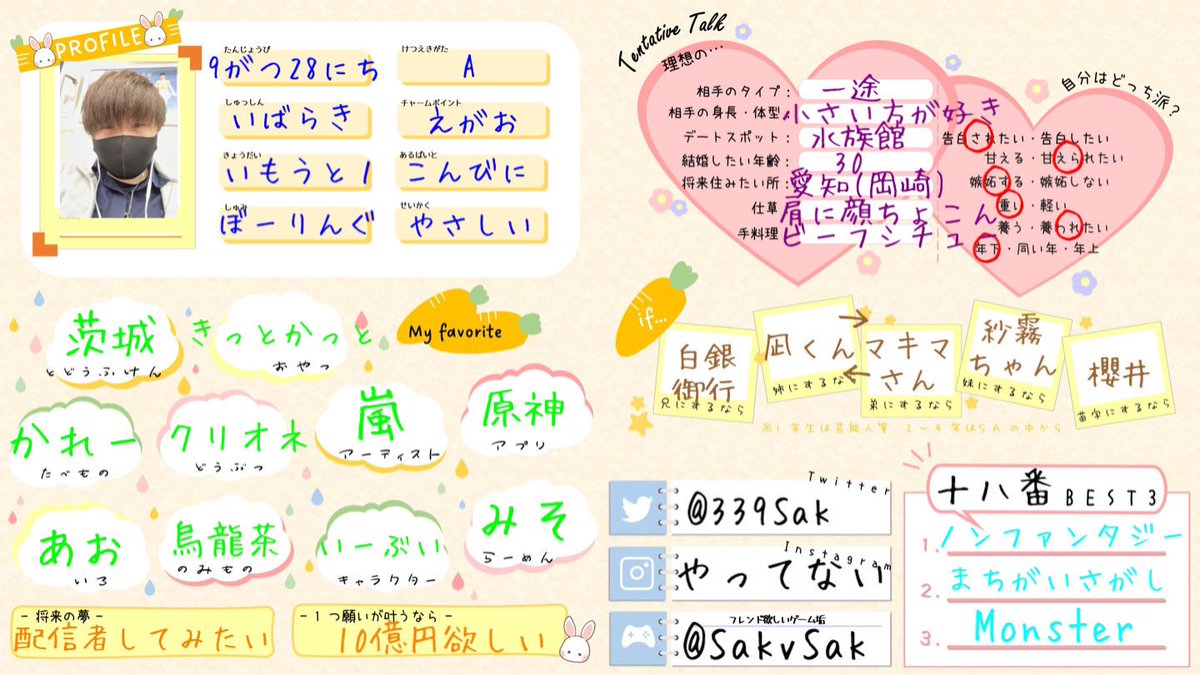 PROFILE
たんじょうび
9がつ28にち
けつえきがた
A
しゅっしん
いばらき
チャームポイント
えがお
きょうだい
いもうと1
あるばいと
こんびに
しゅみ
ぼーりんぐ
せいかく
やさしい
Tentative Talk
理想の…
相手のタイプ: 一途
相手の身長・体型 小さい方が好き
デートスポット: 水族館
結婚したい年齢: 30
将来住みたい所: 愛知(岡崎)
仕草 肩に顔ちょこん
手料理 ビーフシチュー
自分はどっち派?
告白されたい・告白したい
甘える・甘えられたい
嫉妬する・嫉妬しない
重い・軽い
養う・養われたい
年下・同い年・年上
My favorite
茨城
とどうふけん
きっとかっと
おやつ
かれー
たべもの
クリオネ
どうぶつ
嵐
アーティスト
原神
アプリ
あお
いろ
烏龍茶
のみもの
いーぶい
キャラクター
みそ
らーめん
- 将来の夢 -
配信者してみたい
- 1つ願いが叶うなら -
10億円欲しい
if...
白銀
御行
兄にするなら
凪くん
姉にするなら
マキマ
さん
弟にするなら
紗霧
ちゃん
妹にするなら
櫻井
苗字にするなら
※1年生は芸能人等 2~4年はSAの中から
Twitter
@339Sak
Instagram
やってない
フレンド欲しいゲーム垢
@SakvSak
十八番 BEST3
1. ノンファンタジー
2. まちがいさがし
3. Monster